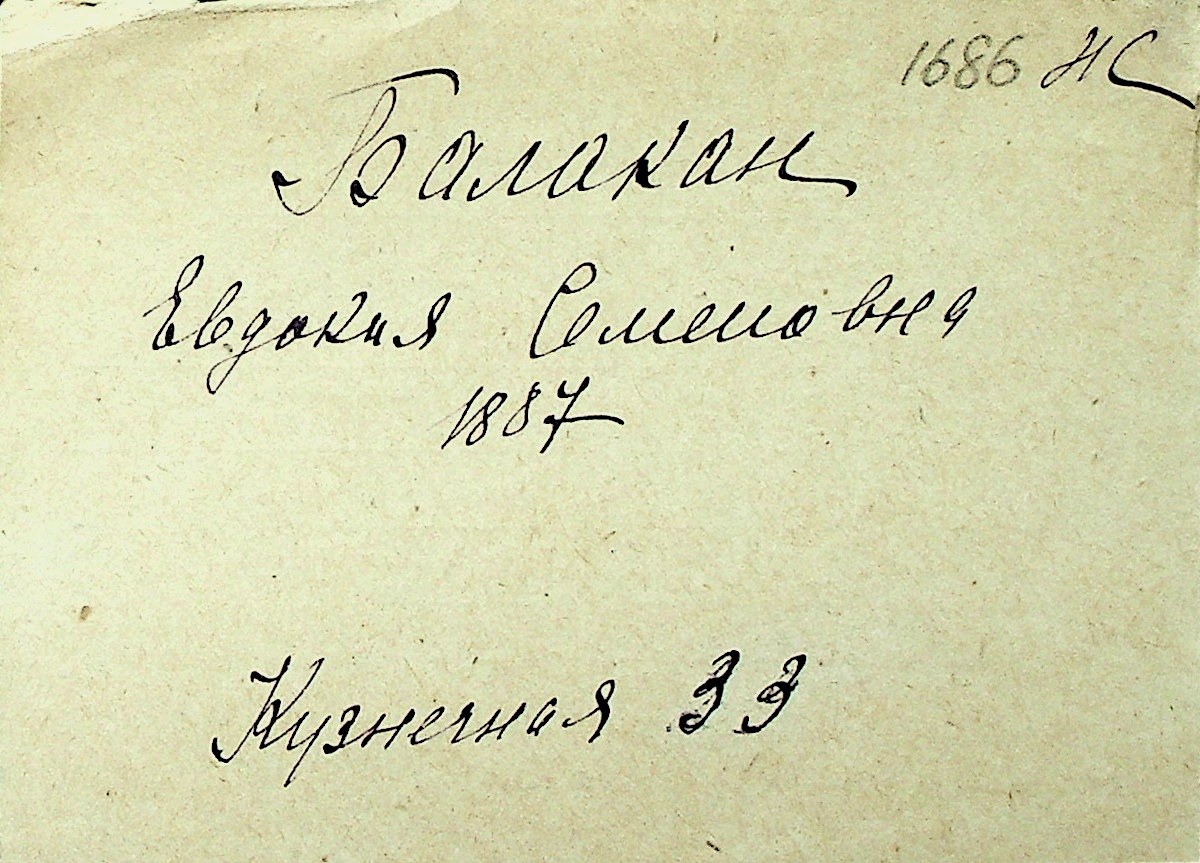 1686 НС
Балакан
Евдокия Семеновна
1887
Кузнечная 33